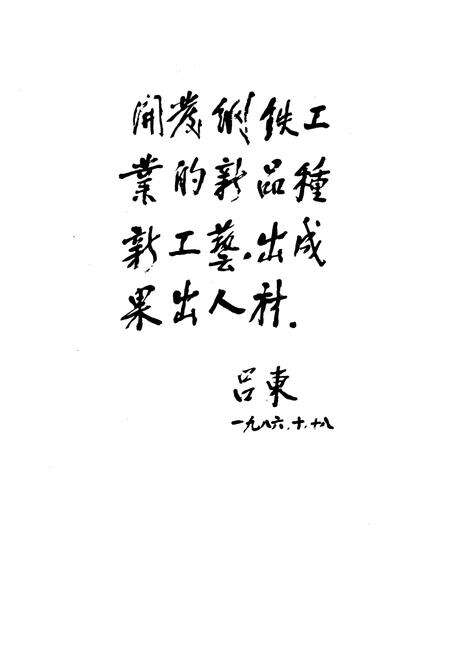 開发鋼鉄工
業的新品種
新工藝.出成
果出人材.
吕東
一九八六.十.十八